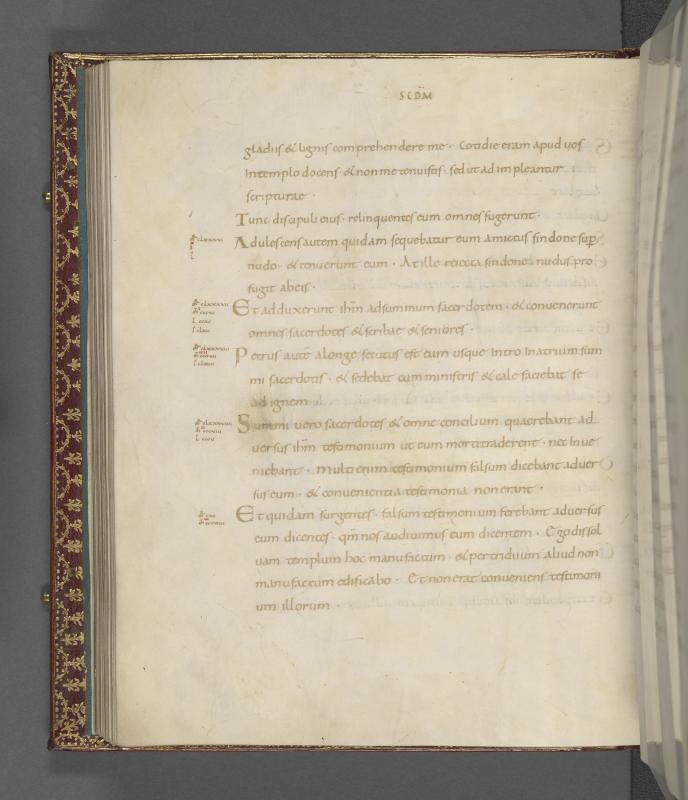 SCDM̄
gladiis & lignis comprehendere me · Cotidie eram apud vos
in templo docens & non me tenuistis · sed ut adimpleantur
scripturae ·
Tunc discipuli eius · relinquentes eum omnes fugerunt ·
Adulescens autem quidam sequebatur eum amictus sindone sup
nudo · & tenuerunt eum · At ille reiecta sindone · nudus pro
fugit ab eis ·
Et adduxerunt ih̄m ad summum sacerdotem · & convenerunt
omnes sacerdotes & scribae & seniores ·
Petrus aut̄ a longe secutus est eum usque intro in atrium sum
mi sacerdotis · & sedebat cum ministris & calefaciebat se
ad ignem
Summi vero sacerdotes & omne concilium quaerebant ad
versus ih̄m testimonium ut eum morti traderent · nec inve
niebant · multi enim testimonium falsum dicebant adver
sus eum · & convenientia testimonia non erant ·
Et quidam surgentes · falsum testimonium ferebant adversus
eum dicentes · qm̄ nos audivimus eum dicentem · Ego dissol
vam templum hoc manufactum · & per triduum aliud non
manufactum edificabo · Et non erat conveniens testimoni
um illorum ·